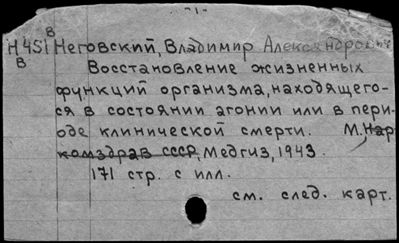 -1-
В
Н 451 Неговский, Владимир Александрович
В
Восстановление жизненных
функций организма, находящего-
ся в состоянии агонии или в пери-
оде клинической смерти. М. Нар
комздрав СССР, Медгиз, 1943.
171 стр. с илл.
см. след. карт.